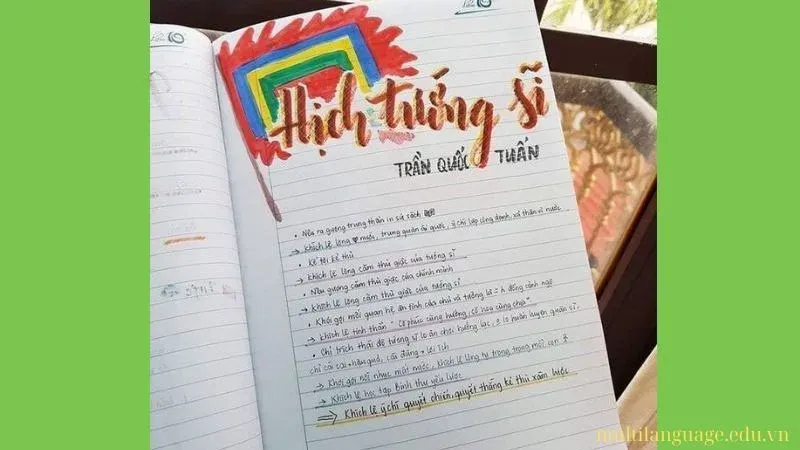 Hịch tướng sĩ
TRẦN QUỐC TUẤN
• Nêu ra gương trung thần in sử sách
→ Khích lệ lòng ♥ nước, trung quân ái quốc, ý chí lập công danh, xả thân vì nước
• Kể tội kẻ thù
→ Khích lệ lòng căm thù giặc của tướng sĩ
• Nêu gương căm thù giặc của chính mình
→ Khích lệ lòng căm thù giặc của tướng sĩ
• Khơi gợi mối quan hệ ân tình của chủ và tướng là = đồng cảnh ngộ
→ Khích lệ tinh thần "có phúc cùng hưởng, có họa cùng chịu"
• Chỉ trích thái độ tướng sĩ lo ăn chơi hưởng lạc, lo huấn luyện quân sĩ.
chỉ cái sai + hậu quả, cái đúng + lợi ích
→ Khơi gợi nỗi nhục mất nước, khích lệ lòng tự trọng trong mỗi con
→ Khích lệ học tập Binh thư yếu lược
⇒ Khích lệ ý chí quyết chiến, quyết thắng kẻ thù xâm lược
multilanguage.edu.vn